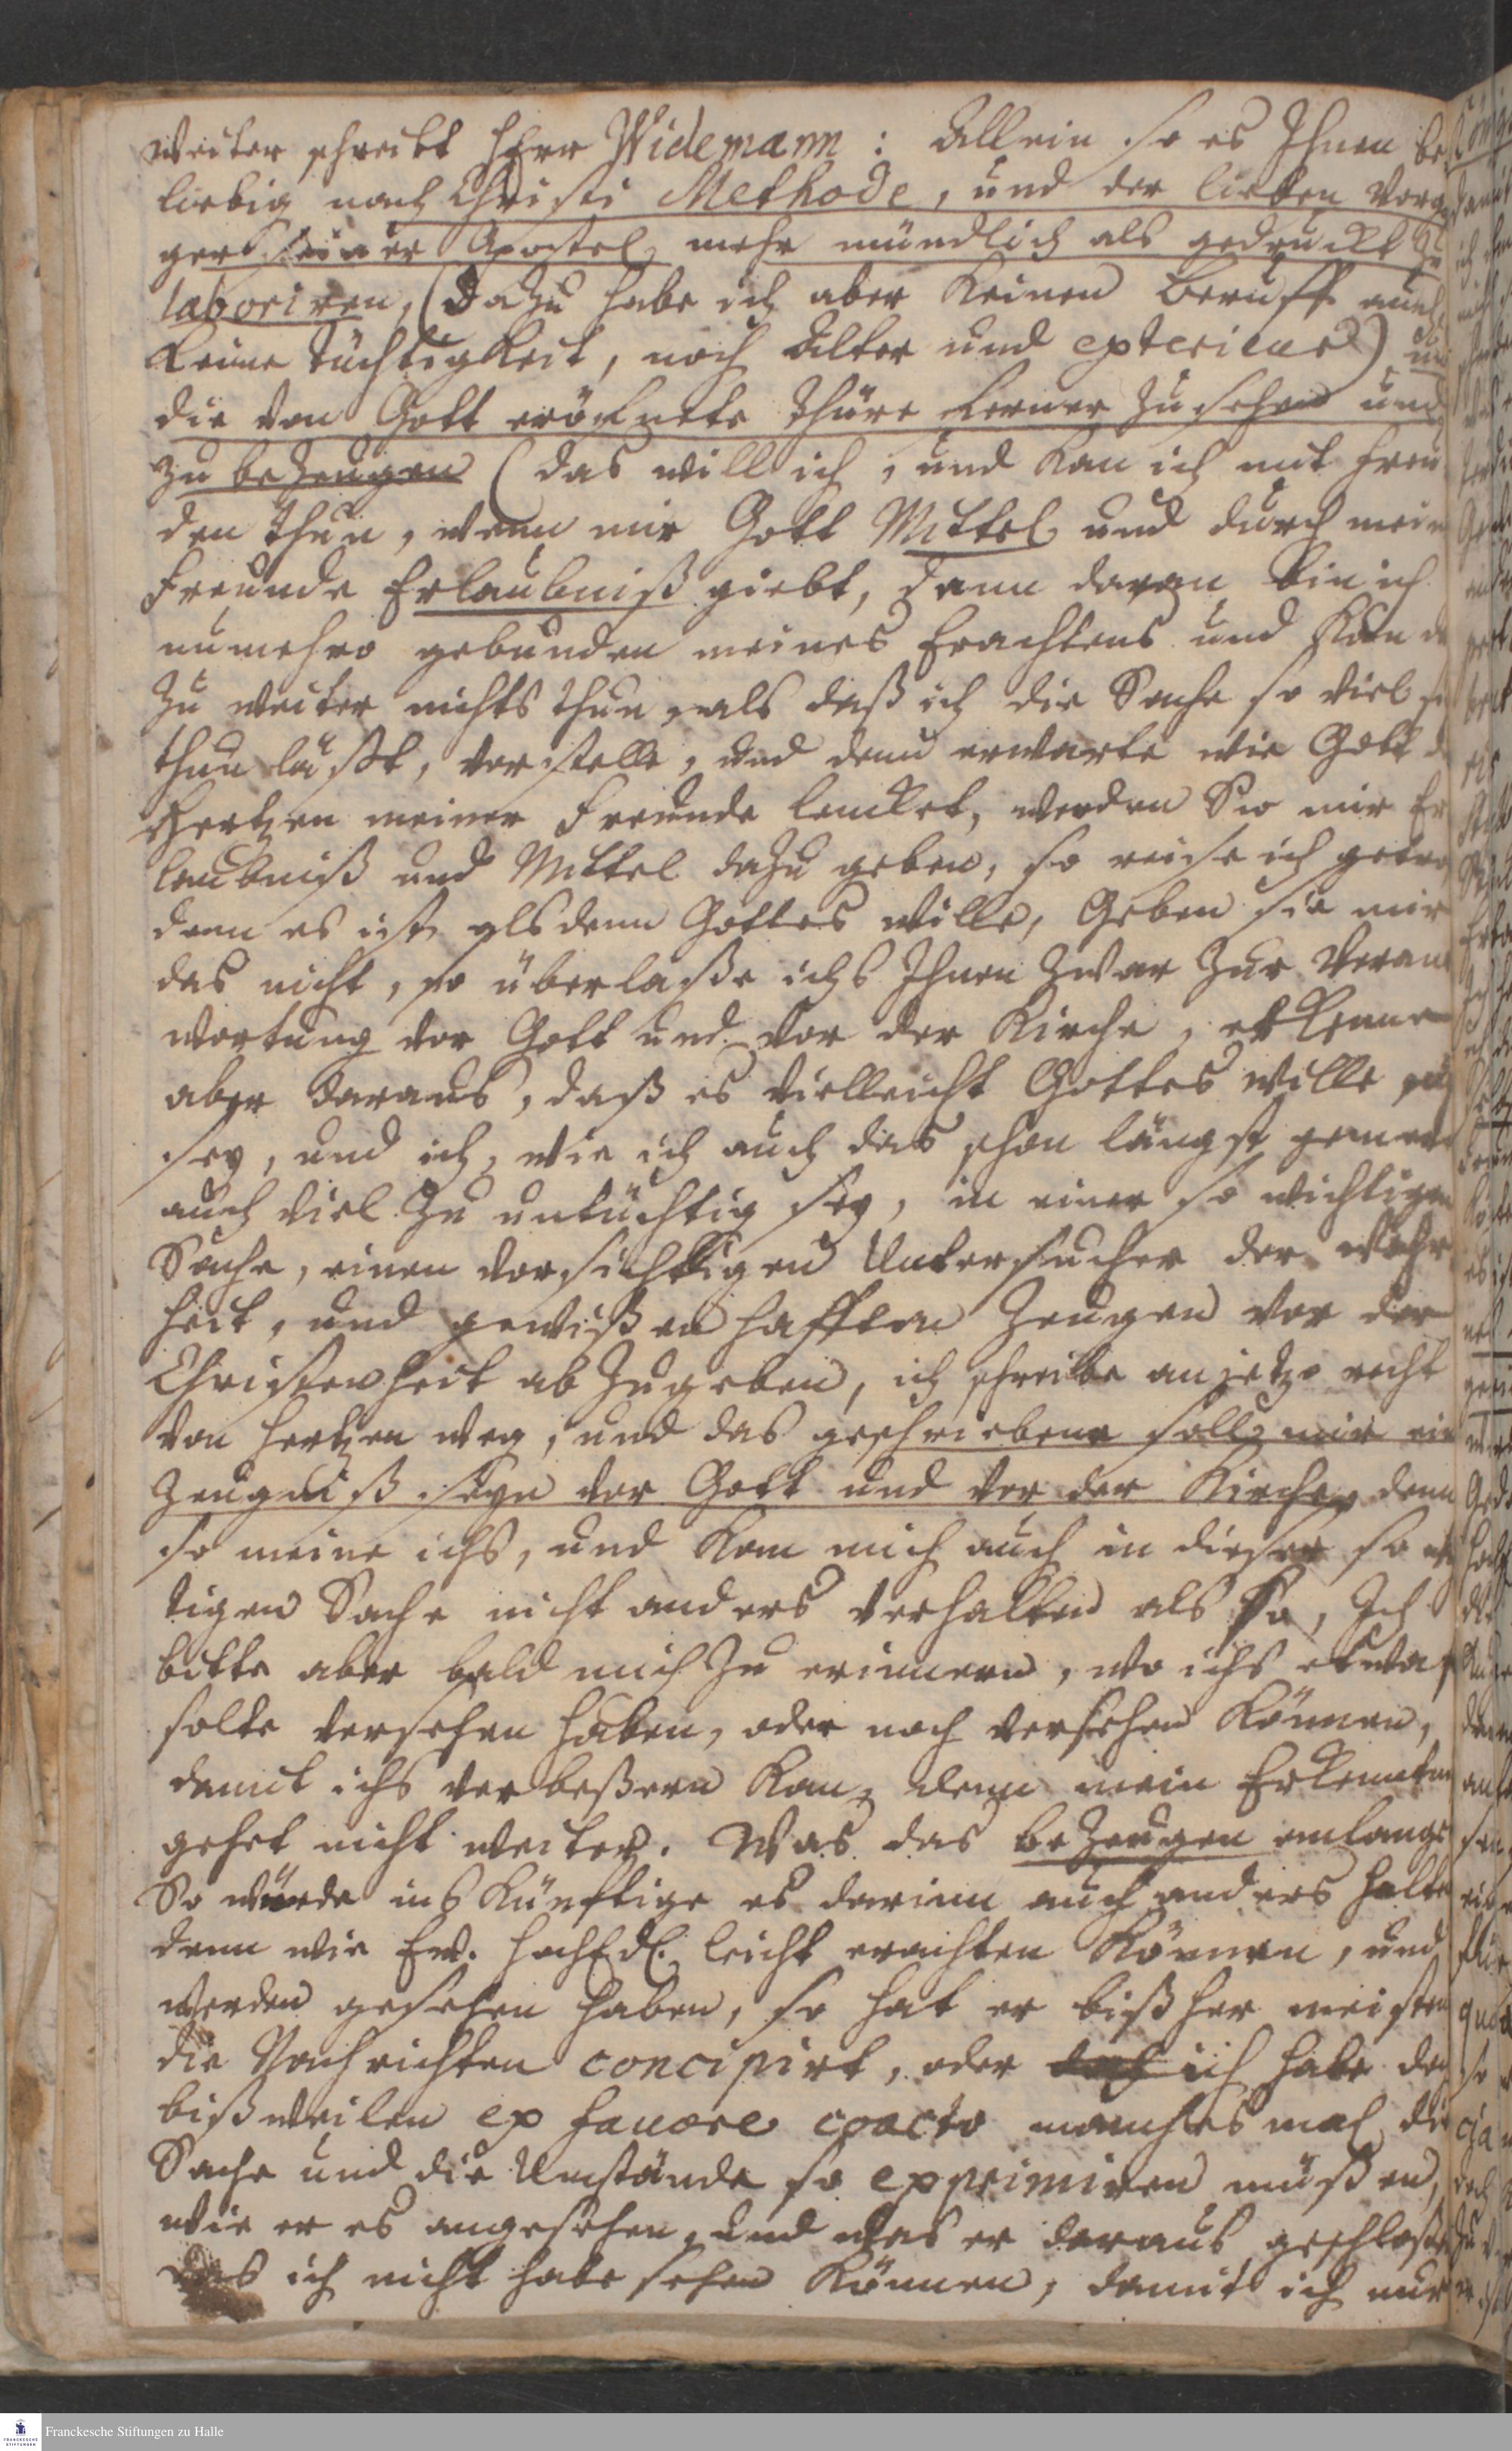 Weiter schreibt Herr Widemann: Allein so es Ihnen be
liebig nach Christi Methode, und der lieben Vorgän
ger seiner Apostel mehr mündlich als gedruckt zu
laboriren, (Dazu habe ich aber keinen Beruff auch
keine Tüchtigkeit, noch Alter und exterieur) und
die von Gott eröfnete Thüre ferner zu sehen und
zu bezeugen (das will ich, und kan ich mit Freu
den thun, wenn mir Gott Mittel und durch meine
Freunde Erlaubniß giebt, dann daran bin ich
nunmehro gebunden meines Erachtens und kan da
zu weiter nichts thun, als daß ich die Sache so viel sich
thun läßt, vorstelle, und denn erwarte wie Gott d
Hertzen meiner Freunde lencket, werden Sie mir Er
laubniß und Mittel dazu geben, so reise ich getrost
denn es ist alsdenn Gottes Wille, Geben sie mir
das nicht, so überlaße ichs Ihnen zwar zur Verant
wortung vor Gott und vor der Kirche, erkenne
aber daraus, daß es vielleicht Gottes Wille nicht
sey, und ich, wie ich auch das schon längst gemerckt
auch viel zu untüchtig sey, in einer so wichtigen
Sache, einen vorsichtigen Untersucher der Wahr
heit, und gewißenhafften Zeugen vor der
Christenheit abzugeben, ich schreibe anjetzo recht
von Hertzen weg, und das geschriebene soll mir ein
Zeugniß seyn vor Gott und vor der Kirche, denn
so meine ichs, und kan mich auch in dieser so wich
tigen Sache nicht anders verhalten als so, Ich
bitte aber bald mich zu erinnern, wo ichs etwas
solte versehen haben, oder noch versehen können,
damit ichs verbeßern kan, denn mein Erkenntniß
gehet nicht weiter. Was das bezeugen anlangt
So würde ins künftige es darinn auch anders halten
denn wie Ew. HochEdl. leicht erachten können, und
werden gesehen haben, so hat er bißher meistens
die Nachrichten concipirt, oder ich habe doch
bißweilen ex favore coacto manches mal die
Sache und die Umstände so exprimiren müßen,
wie er es angesehen, und was er daraus geschloßen
das ich nicht habe sehen können, damit ich nur
Franckesche Stiftungen zu Halle